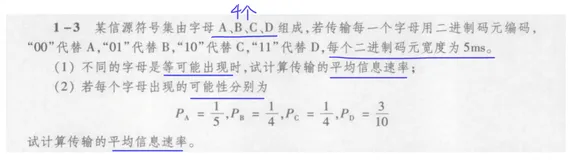 4个
1-3 某信源符号集由字母 A、B、C、D 组成,若传输每一个字母用二进制码元编码,
“00”代替 A,“01”代替 B,“10”代替 C,“11”代替 D,每个二进制码元宽度为 5ms。
(1) 不同的字母是等可能出现时,试计算传输的平均信息速率;
(2) 若每个字母出现的可能性分别为
P_A = 1/5, P_B = 1/4, P_C = 1/4, P_D = 3/10
试计算传输的平均信息速率。